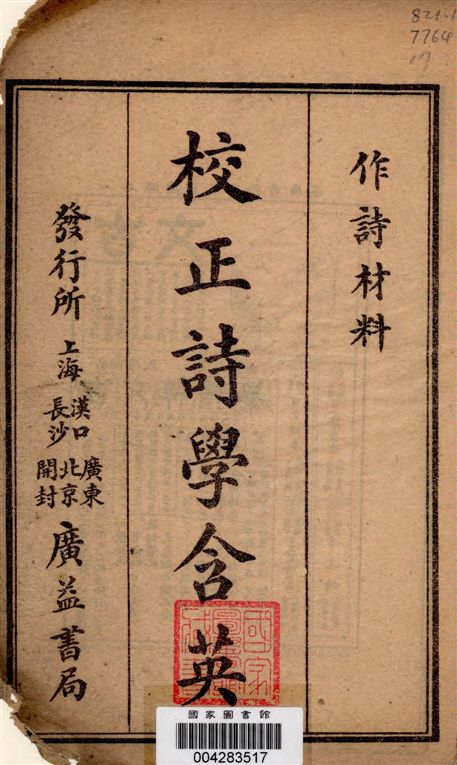 作詩材料
校正詩學含英
發行所 上海 漢口 長沙 廣東 北京 開封 廣益書局
國家圖書館
004283517